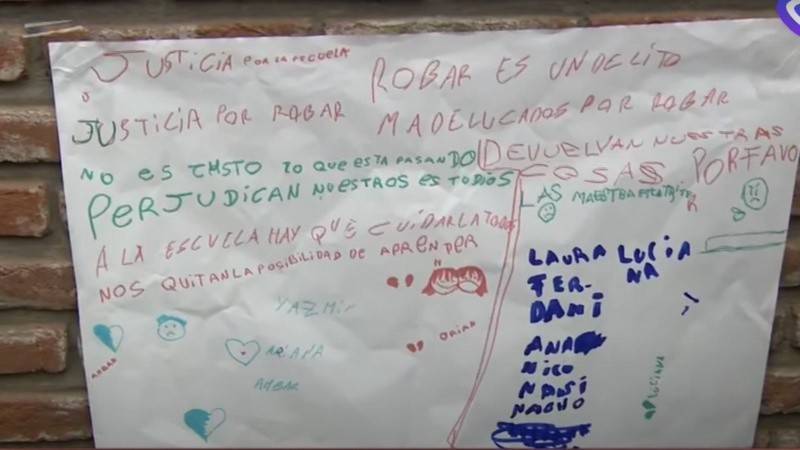 JUSTICIA POR LA ESCUELA
ROBAR ES UN DELITO
JUSTICIA POR ROBAR
MADELUCADOS POR ROBAR
NO ES INSTO LO QUE ESTA PASANDO
DEVUELVAN NUESTRAS
COSAS PORFAVO
PERJUDICAN NUESTROS ESTUDIOS
A LA ESCUELA HAY QUE CUIDARLA TODOS
NOS QUITAN LA POSIBILIDAD DE APRENDER
LAS MAESTRA
LAURA LUCIANA
FER-
DANI
ANA
NICO
NADI
NACHO
YAZMIN
ARIANA
AMBAR
ORIAN
AMBAR
LUCIANA